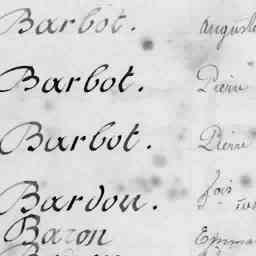 Barbot. Auguste
Barbot. Pierre
Barbot. Pierre
Bardou. fois
Baron Emma